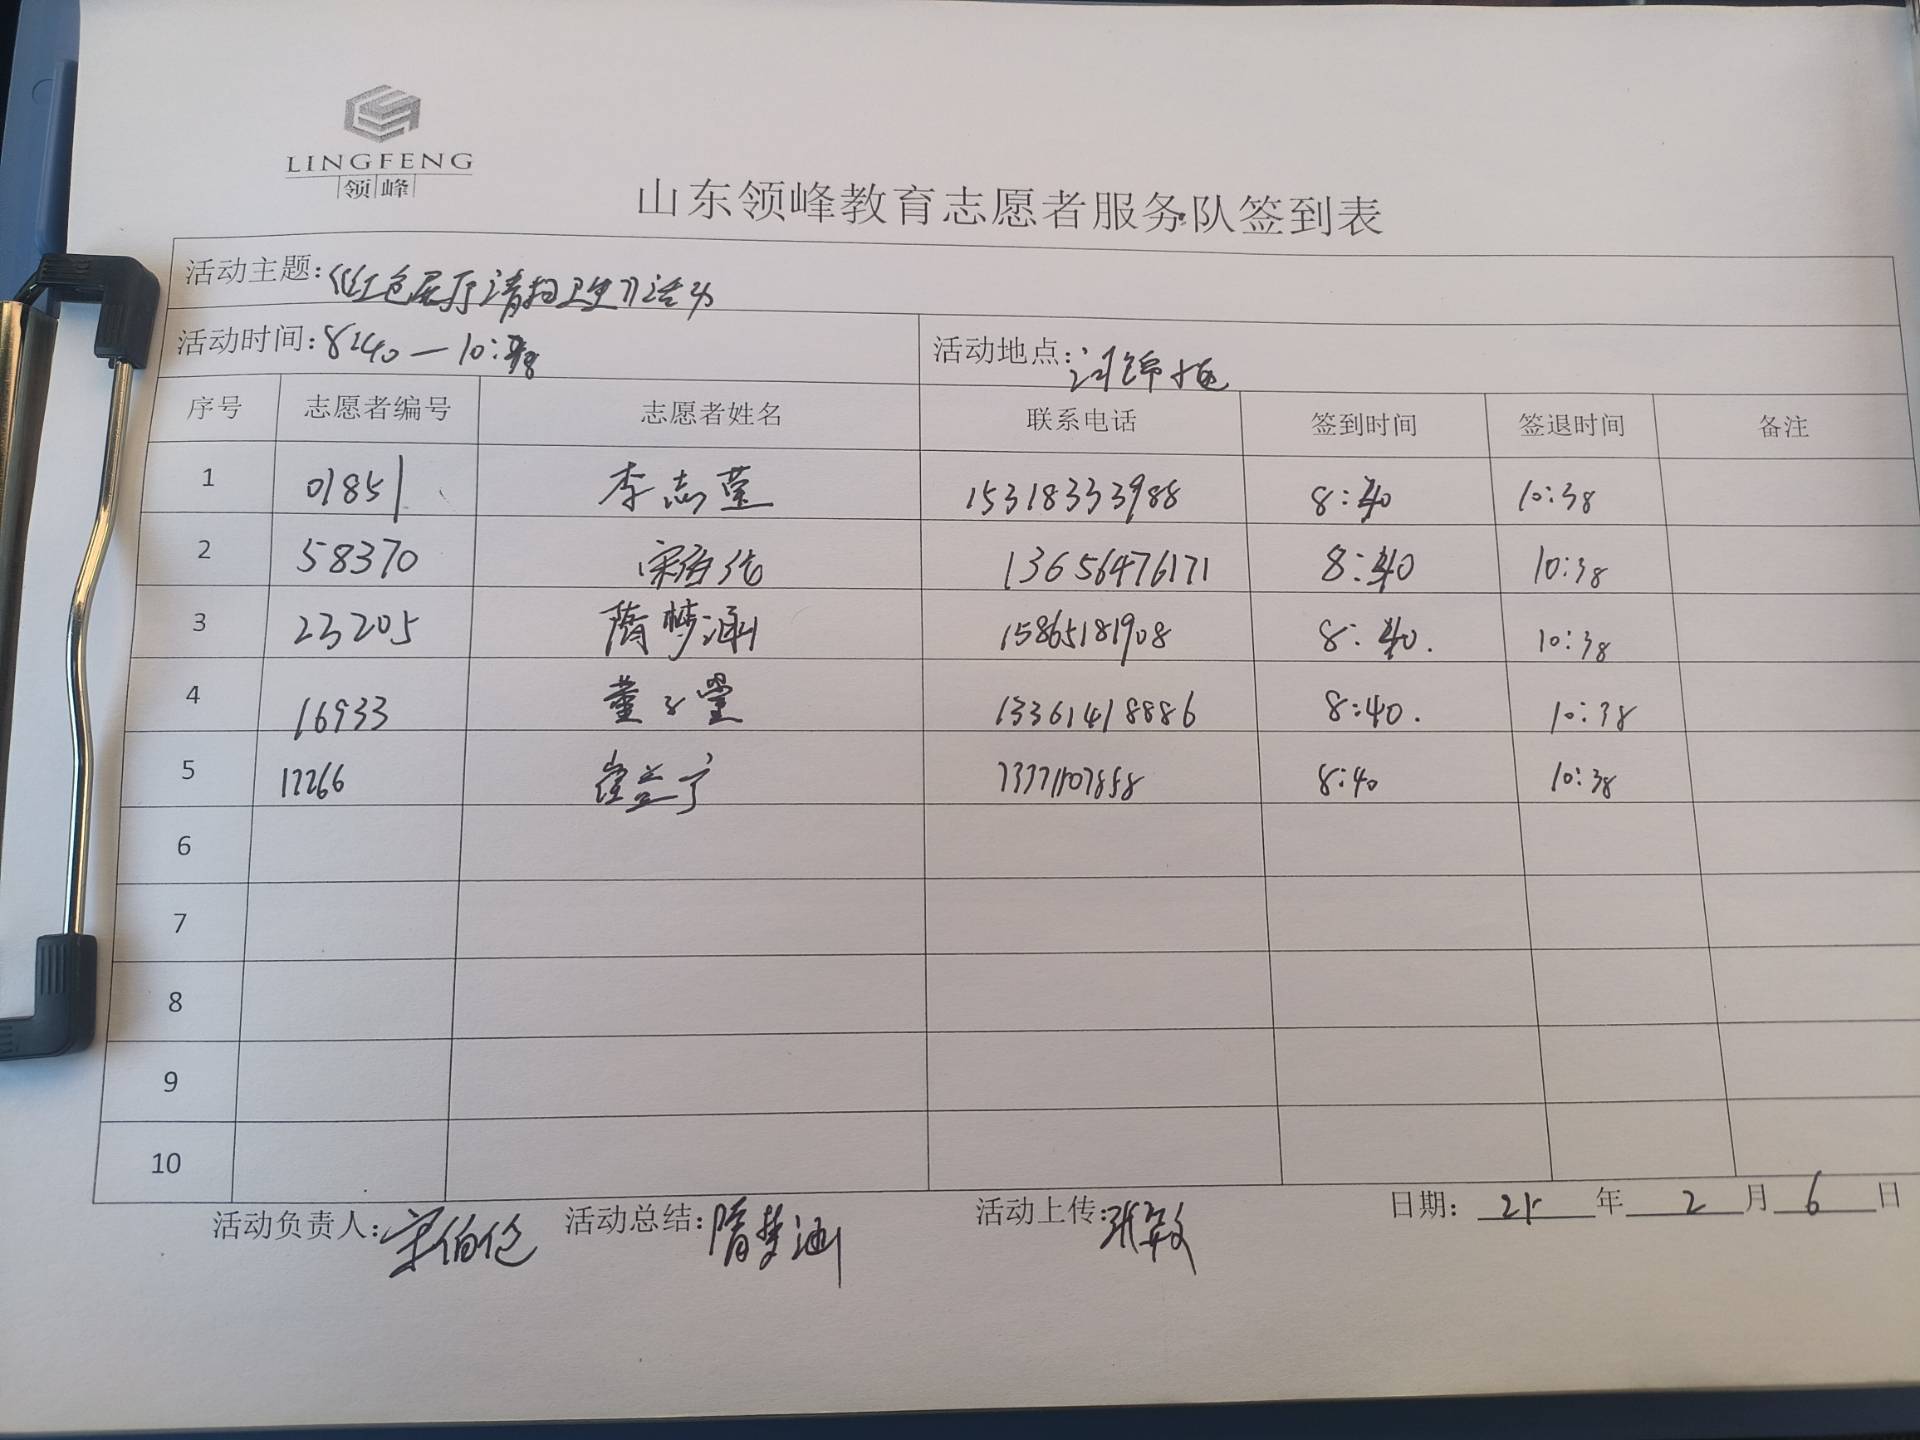 LINGFENG
领峰
山东领峰教育志愿者服务队签到表
活动主题:《红色展厅清扫卫生》活动
活动时间:8:40—10:38 活动地点:
序号 志愿者编号 志愿者姓名 联系电话 签到时间 签退时间 备注
1 01851 李志莹 15318333988 8:40 10:38
2 58370 宋伯伦 13656476171 8:40 10:38
3 23205 隋梦涵 15865181908 8:40. 10:38
4 16933 董子莹 13361418886 8:40. 10:38
5 17266 崔兰宁 8:40 10:38
6
7
8
9
10
活动负责人:宋伯伦 活动总结:隋梦涵 活动上传:张敏 日期: 年 2 月 6 日